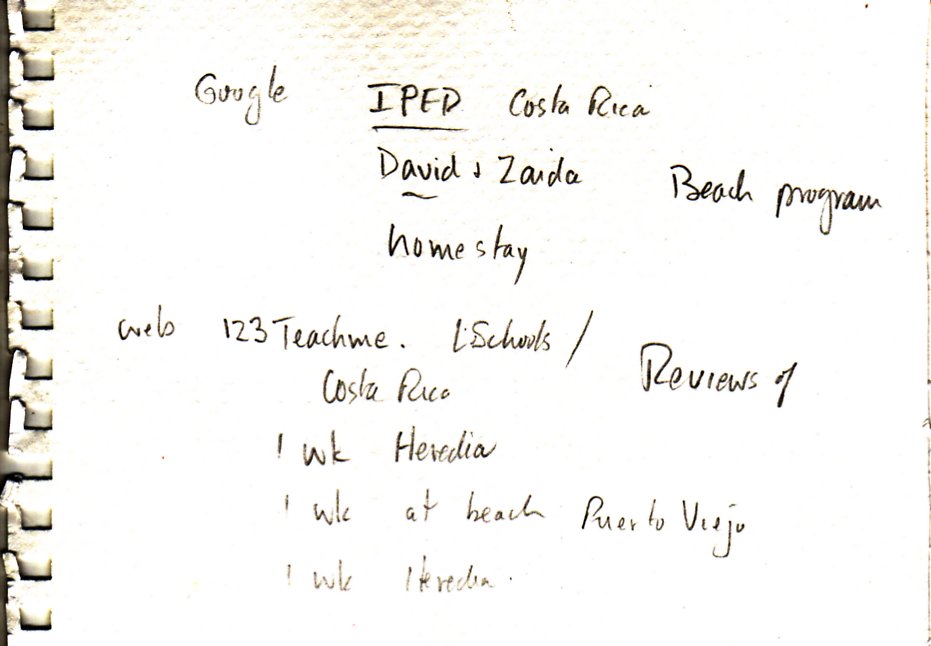 Google IPED Costa Rica
David & Zaida Beach program
homestay
web 123Teachme. L.Schools / Reviews of
Costa Rica
1 wk Heredia
1 wk at beach Puerto Viejo
1 wk Heredia.